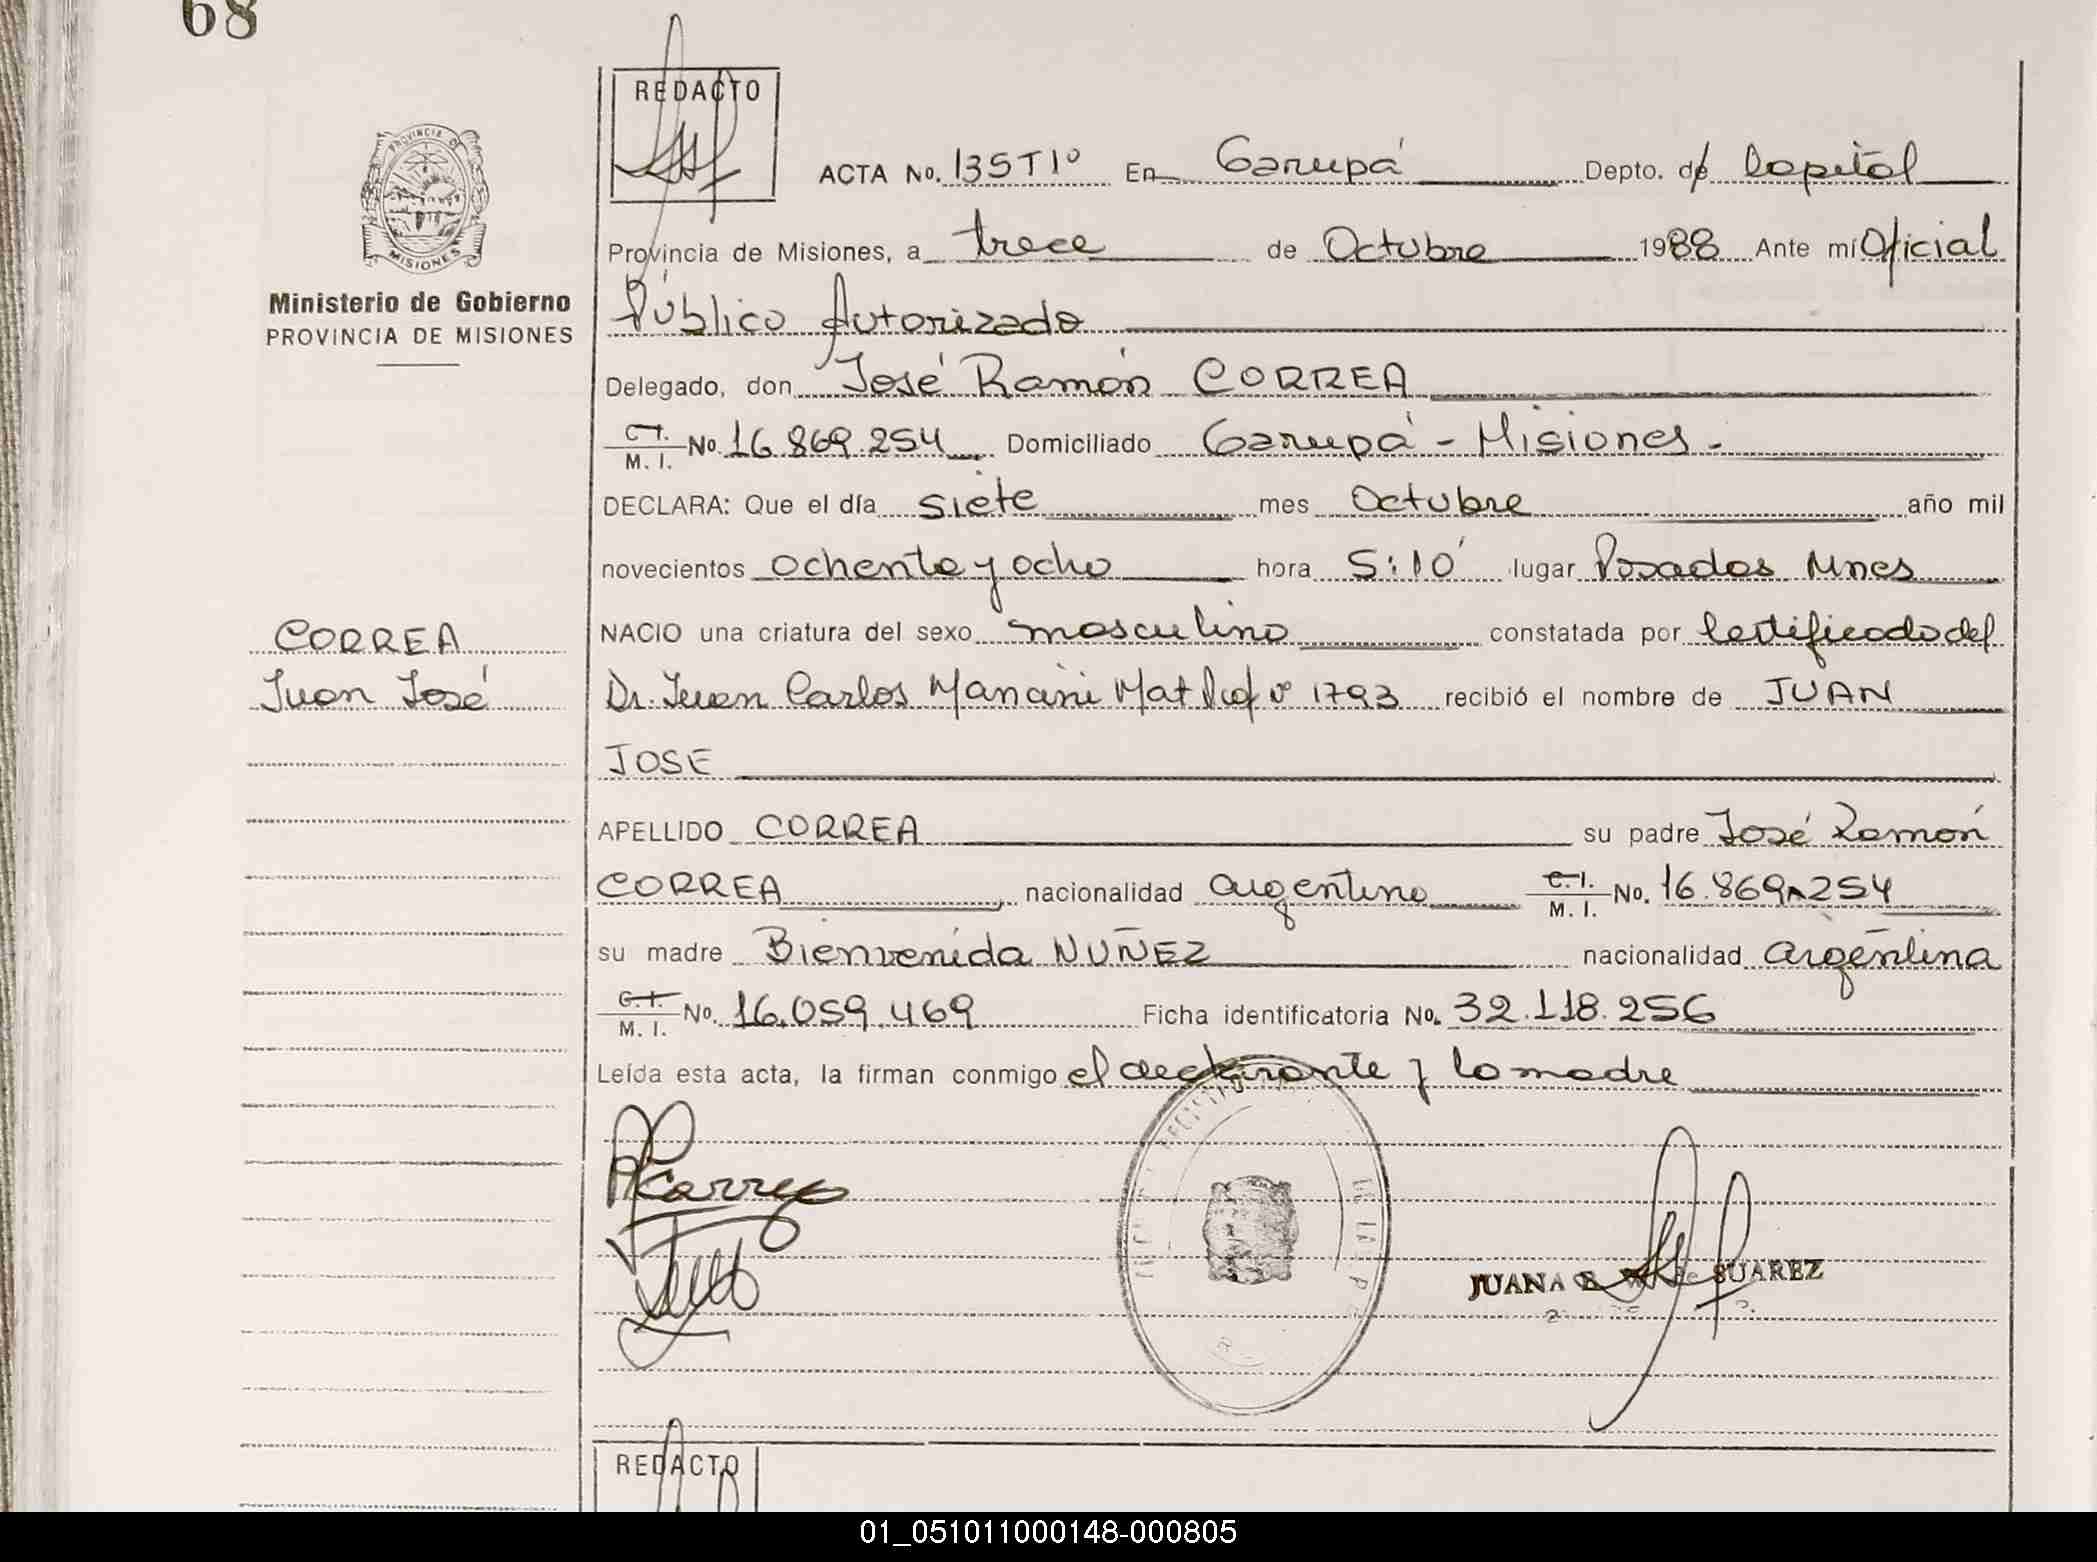 68
REDACTO
PROVINCIA DE
MISIONES
Ministerio de Gobierno
PROVINCIA DE MISIONES
ACTA No. 135 T1º En Garupá Depto. de Capital
Provincia de Misiones, a trece de Octubre 1988 Ante mí Oficial
Público Autorizado
Delegado, don José Ramón CORREA
C.I. M. I. No. 16.869.254 Domiciliado Garupá - Misiones -
DECLARA: Que el día siete mes Octubre año mil
novecientos ochenta y ocho hora 5:10' lugar Posadas Mnes
CORREA
Juan José
NACIO una criatura del sexo masculino constatada por Certificado del
Dr. Juan Carlos Mat 1793 recibió el nombre de JUAN
JOSE
APELLIDO CORREA su padre José Ramón
CORREA nacionalidad argentino C.I. M. I. No. 16.869.254
su madre Bienvenida NUÑEZ nacionalidad argentina
C.I. M. I. No. 16.059.469 Ficha identificatoria No. 32.118.256
Leída esta acta, la firman conmigo el declarante y la madre
JUANA SUAREZ
REDACTO
01_051011000148-000805